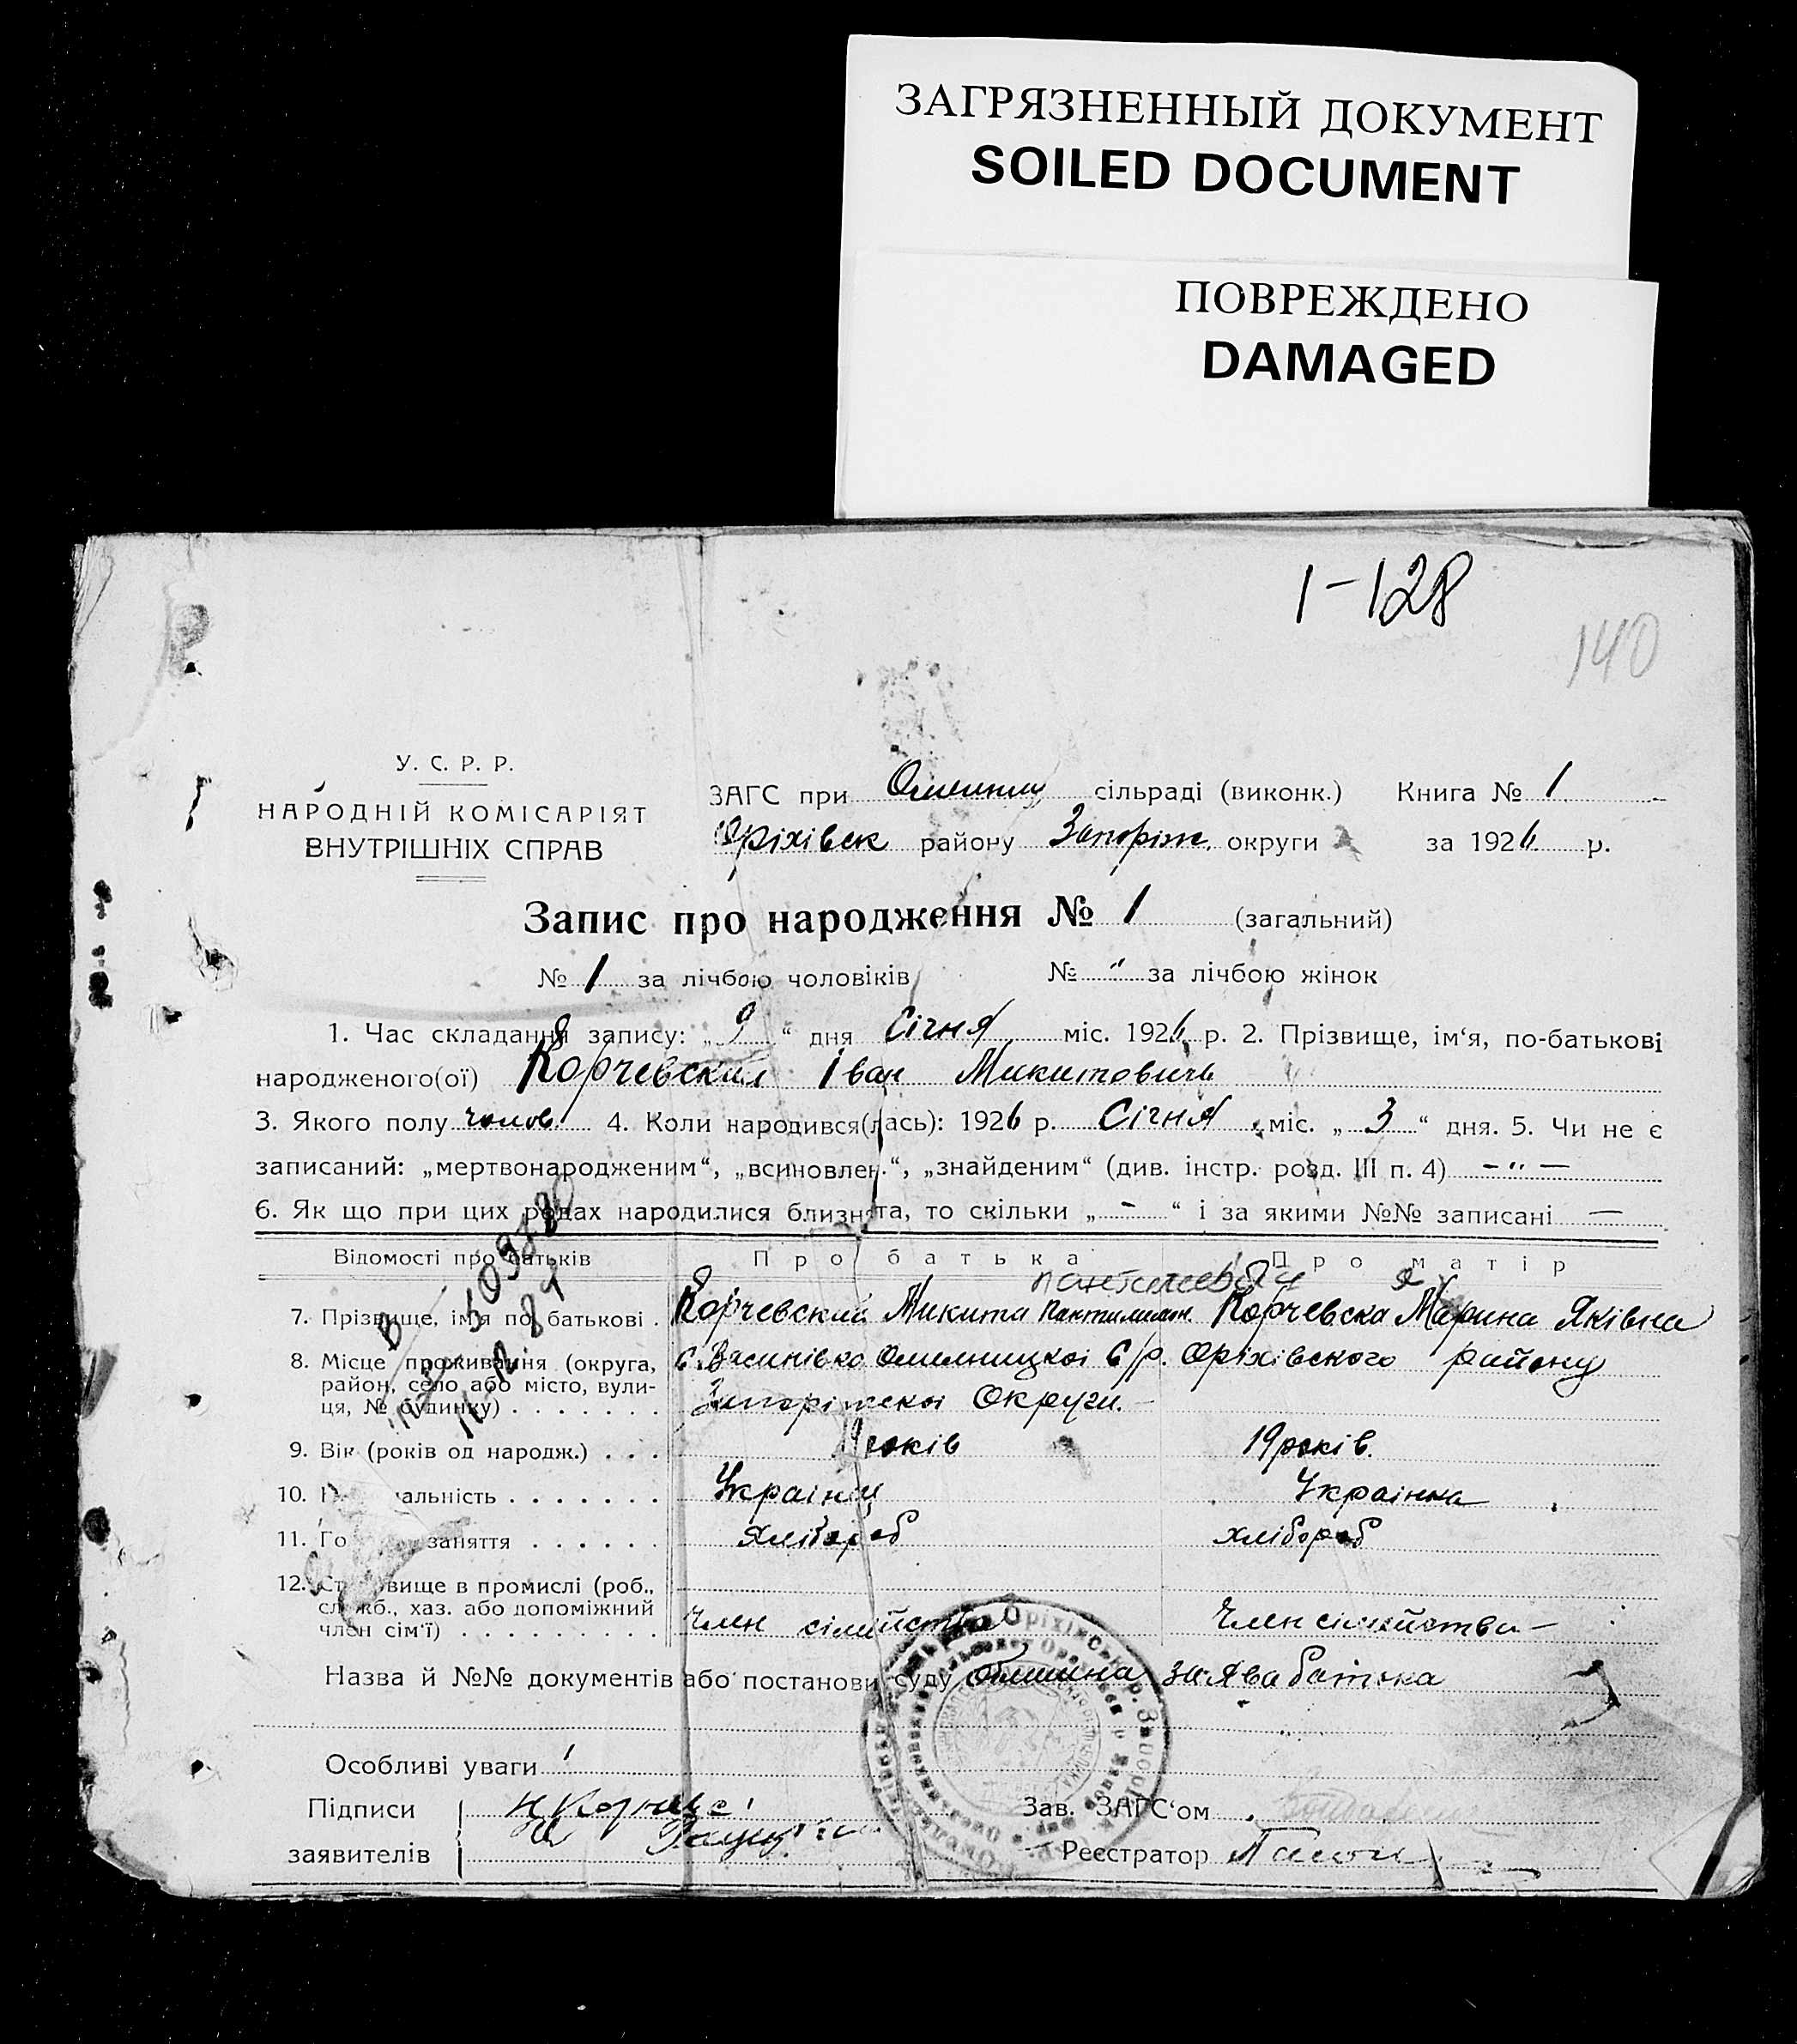 ЗАГРЯЗНЕННЫЙ ДОКУМЕНТ
SOILED DOCUMENT
ПОВРЕЖДЕНО
DAMAGED
1-128
140
У. С. Р. Р.
НАРОДНІЙ КОМІСАРІЯТ
ВНУТРІШНІХ СПРАВ
ЗАГС при сільраді (виконк.) Книга № 1
Оріхівськ району Запоріж. округи за 1926 р.
Запис про народження № 1 (загальний)
№ 1 за лічбою чоловіків № " за лічбою жінок
1. Час складання запису: „ 9 “ дня Січня міс. 1926 р. 2. Прізвище, ім‘я, по-батькові
народженого(ої) Корчевский Іван Микитовичь
3. Якого полу чолов. 4. Коли народився(лась): 1926 р. Січня міс. „ 3 “ дня. 5. Чи не є
записаний: „мертвонародженим“, „всиновлен.“, „знайденим“ (див. інстр. розд. III п. 4) - " —
6. Як що при цих родах народилися близнята, то скільки „ - “ і за якими №№ записані —
Відомості про батьків Про батька Про матір
7. Прізвище, ім'я по батькові . Корчевский Микита Пантилимон. Корчевска Марина Яківна
8. Місце проживання (округа, район, село або місто, вулиця, № будинку) . . . . . . .
С. Васинівка Омельницкоі С/р. Оріхівского району
Запоріжскоі Округи.
9. Вік (років од народж.) . . . років 19 років.
10. Українец Українка
11. заняття . . . . . . хлібороб хлібороб
12. в промислі (роб., служб., хаз. або допоміжний член сім'ї) . . . . . . . . .
Член сімейства Член сімейства —
Назва й №№ документів або постанови суду заява батька
Особливі уваги
Підписи
заявителів
Зав. ЗАГС‘ом
Реєстратор